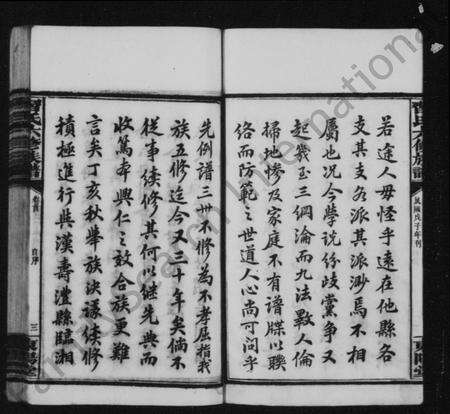 若途人毋怪乎遠在他縣各
支其支各派其派渺焉不相
屬也况今學説紛歧黨争又
起幾至三綱淪而九法斁人倫
掃地慘及家庭不有譜牒以聯
絡而防範之世道人心尚可問乎
民國戊子年刊
先例譜三世不修為不孝屈指我
族五修迄今又三十年矣倘不
從事續修其何以继先典而
收篤本興仁之效合族更難
言矣丁亥秋舉族決議續修
積極進行與漢壽澧縣臨湘
氏六修族譜
卷首
自序
三